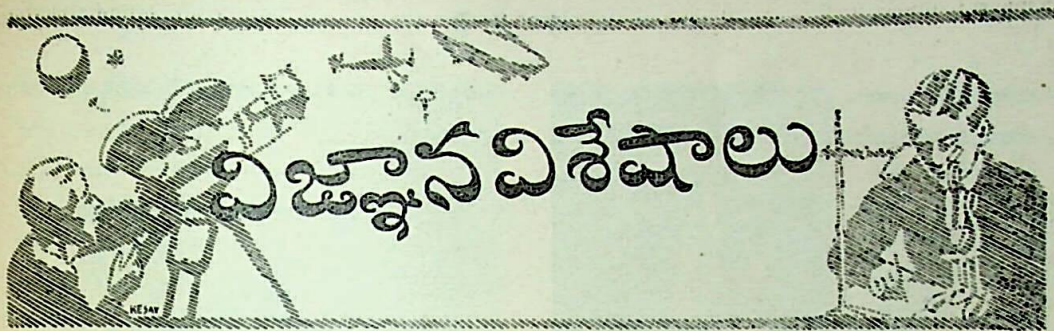 విజ్ఞానవిశేషాలు
KESAV